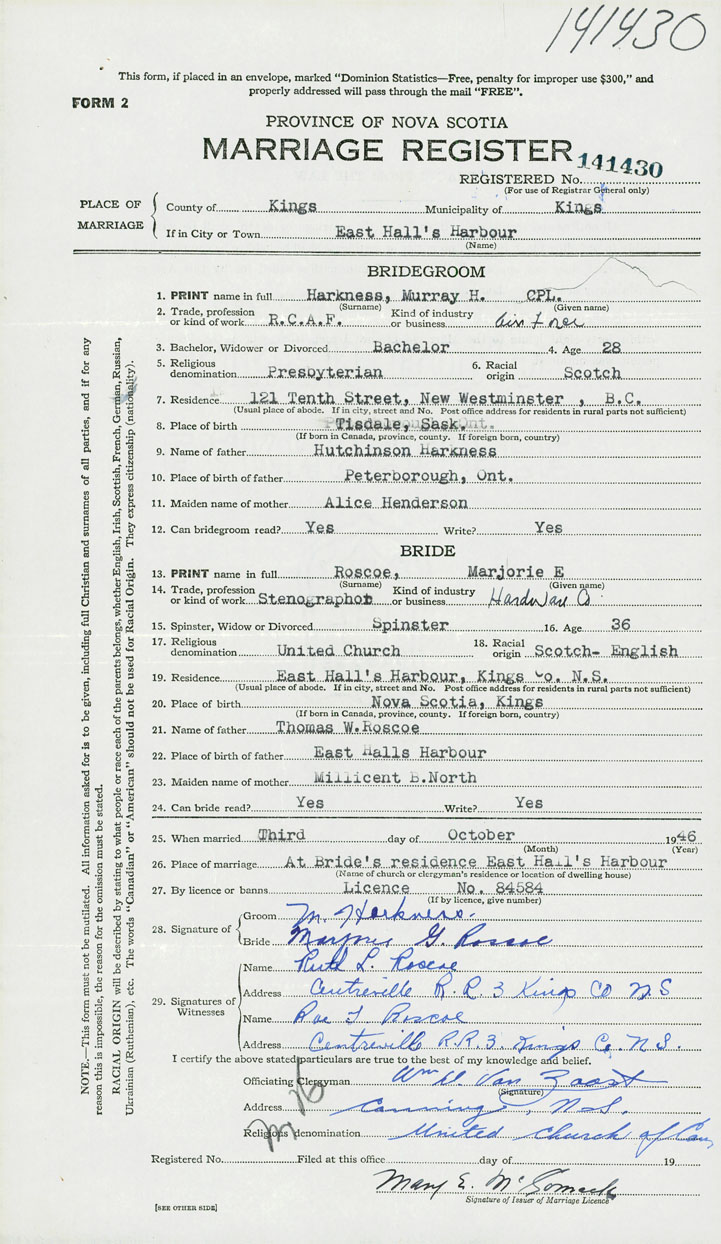 141430
This form, if placed in an envelope, marked "Dominion Statistics—Free, penalty for improper use $300," and
properly addressed will pass through the mail "FREE".
FORM 2
PROVINCE OF NOVA SCOTIA
MARRIAGE REGISTER
141430
REGISTERED No.
(For use of Registrar General only)
PLACE OF MARRIAGE
County of Kings Municipality of Kings
If in City or Town East Hall's Harbour
(Name)
BRIDEGROOM
1. PRINT name in full Harkness, Murray H. CPL.
(Surname) (Given name)
2. Trade, profession or kind of work R.C.A.F. Kind of industry or business Air Force
3. Bachelor, Widower or Divorced Bachelor 4. Age 28
5. Religious denomination Presbyterian 6. Racial origin Scotch
7. Residence 121 Tenth Street, New Westminster , B.C.
(Usual place of abode. If in city, street and No. Post office address for residents in rural parts not sufficient)
8. Place of birth Tisdale, Sask.
(If born in Canada, province, county. If foreign born, country)
9. Name of father Hutchinson Harkness
10. Place of birth of father Peterborough, Ont.
11. Maiden name of mother Alice Henderson
12. Can bridegroom read? Yes Write? Yes
BRIDE
13. PRINT name in full Roscoe, Marjorie E
(Surname) (Given name)
14. Trade, profession or kind of work Stenographor Kind of industry or business Hardware Co
15. Spinster, Widow or Divorced Spinster 16. Age 36
17. Religious denomination United Church 18. Racial origin Scotch- English
19. Residence East Hall's Harbour, Kings Co. N.S.
(Usual place of abode. If in city, street and No. Post office address for residents in rural parts not sufficient)
20. Place of birth Nova Scotia, Kings
(If born in Canada, province, county. If foreign born, country)
21. Name of father Thomas W.Roscoe
22. Place of birth of father East Halls Harbour
23. Maiden name of mother Millicent B.North
24. Can bride read? Yes Write? Yes
25. When married Third day of October 1946
(Month) (Year)
26. Place of marriage At Bride's residence East Hall's Harbour
(Name of church or clergyman's residence or location of dwelling house)
27. By licence or banns Licence No. 84584
(If by licence, give number)
28. Signature of
Groom M. Harkness.
Bride Marjorie G. Roscoe
29. Signatures of Witnesses
Name Ruth L. Roscoe
Address Centreville R.R. 3 Kings Co N.S
Name Roe Roscoe
Address Centreville R.R.3 Kings Co. N.S.
I certify the above stated particulars are true to the best of my knowledge and belief.
Officiating Clergyman Wm Van Zoost
(Signature)
Address Canning, N.S.
Religious denomination United Church of Can
Registered No. Filed at this office day of 19
Mary E. McCormack
Signature of Issuer of Marriage Licence
[SEE OTHER SIDE]
NOTE.—This form must not be mutilated. All information asked for is to be given, including full Christian and surnames of all parties, and if for any
reason this is impossible, the reason for the omission must be stated.
RACIAL ORIGIN will be described by stating to what people or race each of the parents belongs, whether English, Irish, Scottish, French, German, Russian,
Ukrainian (Ruthenian), etc. The words "Canadian" or "American" should not be used for Racial Origin. They express citizenship (nationality).